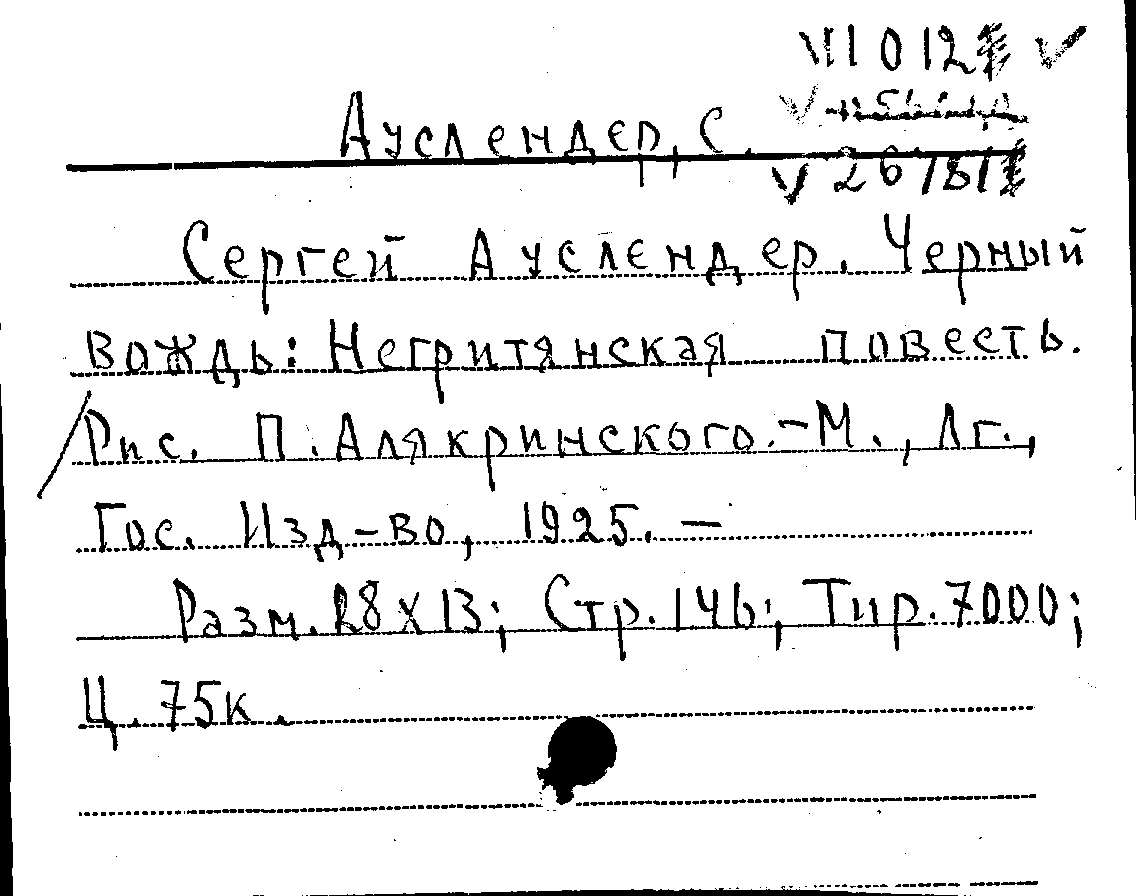 VI 0 12
Ауслендер, С.
V 26787
Сергей Ауслендер. Черный
вождь: Негритянская повесть.
Рис. П. Алякринского.-М., Лг.,
Гос. Изд-во, 1925. —
Разм. 18X13; Стр. 146; Тир. 7000;
Ц. 75к.